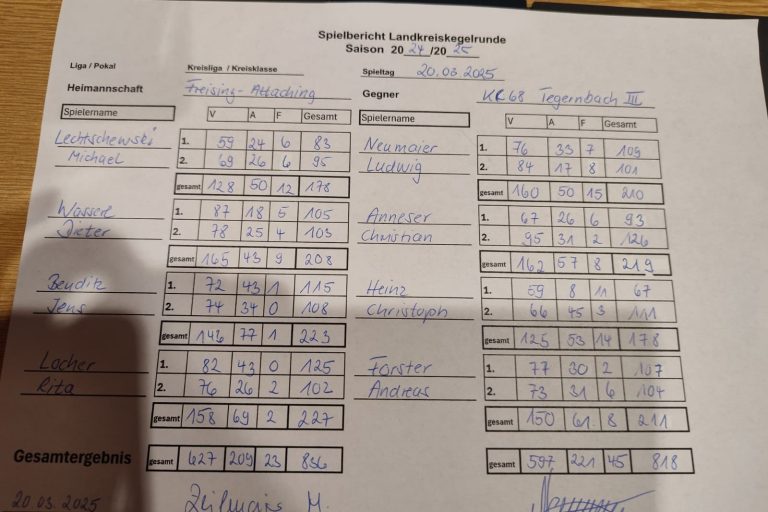 Spielbericht Landkreiskegelrunde
Saison 20 24 /20 25
Liga / Pokal Kreisliga / Kreisklasse Spieltag 20.03.2025
Heimannschaft Freising-Attaching Gegner KC68 Tegernbach III
Spielername V A F Gesamt Spielername V A F Gesamt
Lechtschewski 1. 59 24 6 83 Neumaier 1. 76 33 7 109
Michael 2. 69 26 6 95 Ludwig 2. 84 17 8 101
gesamt 128 50 12 178 gesamt 160 50 15 210
1. 87 18 5 105 Anneser 1. 67 26 6 93
Dieter 2. 78 25 4 103 Christian 2. 95 31 2 126
gesamt 165 43 9 208 gesamt 162 57 8 219
1. 72 43 1 115 Heinz 1. 59 8 11 67
Jens 2. 74 34 0 108 Christoph 2. 66 45 3 111
gesamt 146 77 1 223 gesamt 125 53 14 178
Locher 1. 82 43 0 125 Förster 1. 77 30 2 107
Rita 2. 76 26 2 102 Andreas 2. 73 31 6 104
gesamt 158 69 2 227 gesamt 150 61 8 211
Gesamtergebnis gesamt 627 209 23 836 gesamt 597 221 45 818
20.03.2025 M.